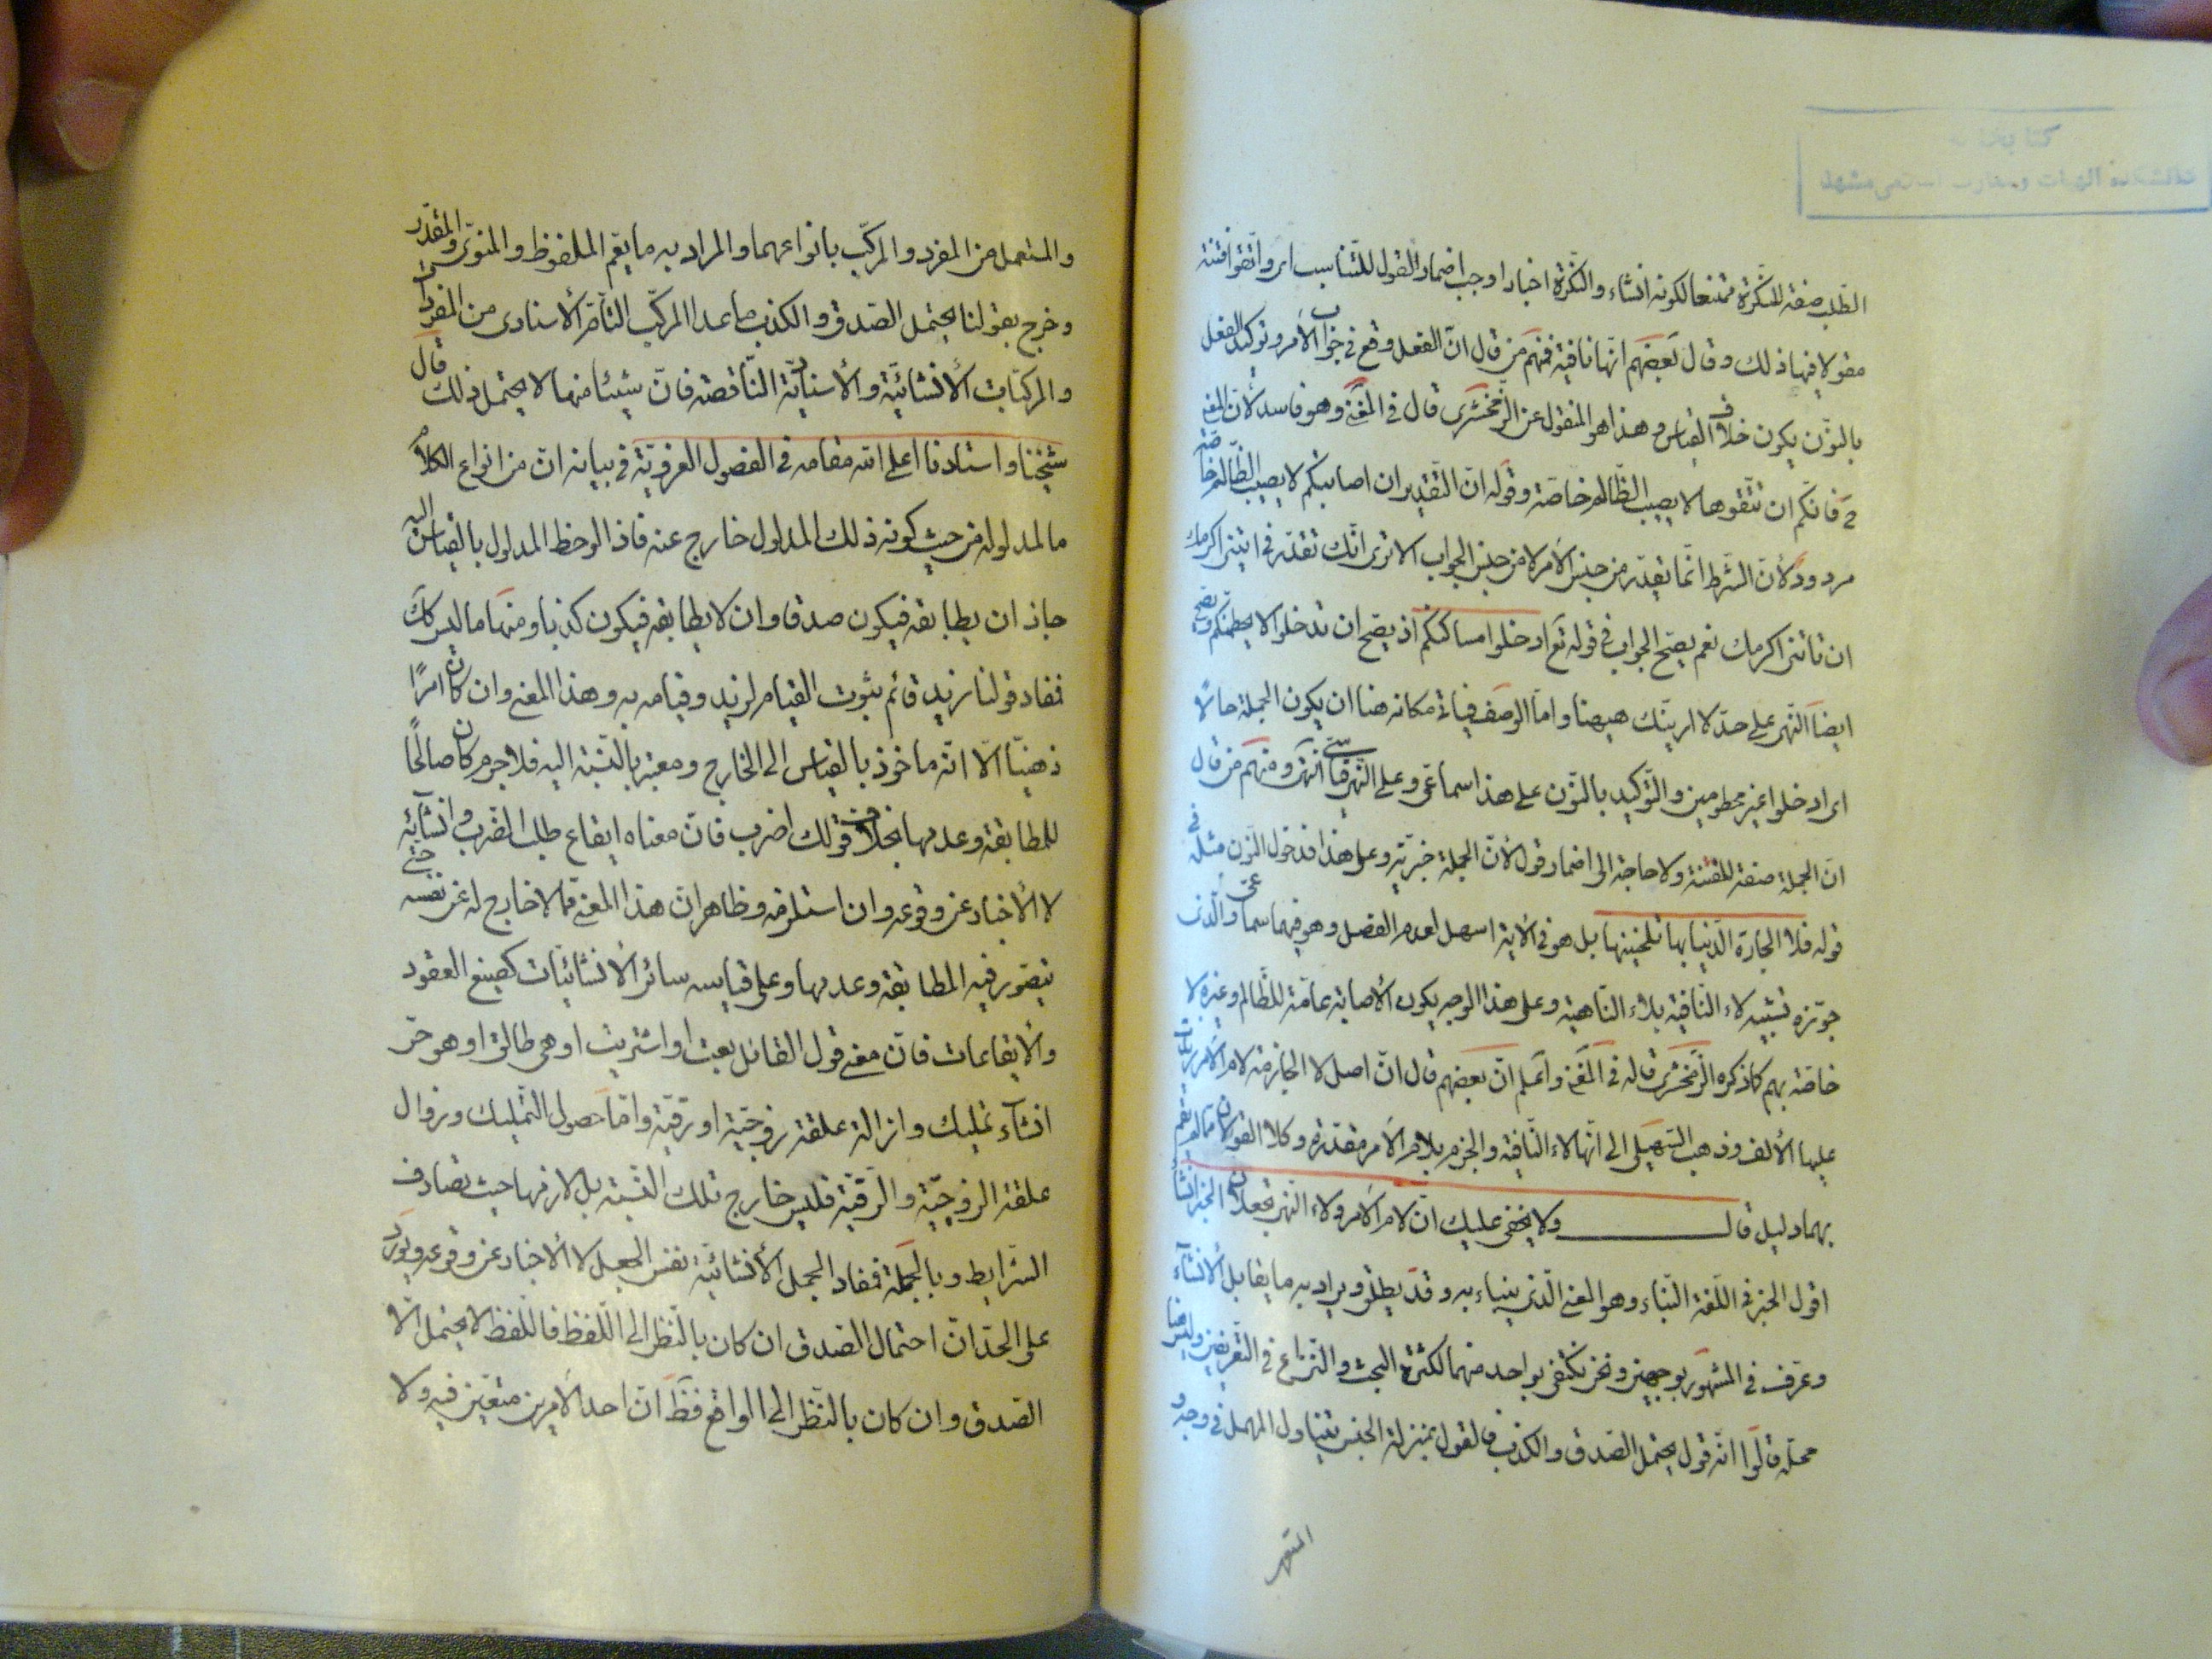 الطّلب صفة للنّكرة ممتنعا لكونه انشاء والنّكرة اخبارا وجب اضمار القول للتّناسب اى واتّقوا فتنة
مقولا فيها ذلك وقال بعضهم انّها نافية فمنهم من قال انّ الفعل وقع في جواب الأمر وتوكيد الفعل
بالنّون يكون خلاف القياس وهذا هو المنقول عن الزّمخشرى قال في المغنى وهو فاسد لأنّ المعنى
ح فانّكم ان تتّقوها لا يصيب الظّالم خاصّة وقوله انّ التّقدير ان اصابتكم لا يصيب الظّالم خاصّة
مردود لأنّ الشّرط انّما يقدّر من جنس الأمر لا من جنس الجواب الا ترى انّك تقدّر في ائتنى اكرمك
ان تأتنى اكرمك نعم يصحّ الجواب في قوله تع ادخلوا مساكنكم اذ يصحّ ان تدخلوا لا يحطمنّكم ويصحّ
ايضا النّهى على حدّ لا ارينّك هيهنا وامّا الوصف فياتى مكانه هنا ان يكون الجملة حالا
اى ادخلوا غير محطومين والتّوكيد بالنّون على هذا سماعى وعلى النّهى قياسىّ انتهى ومنهم من قال
انّ الجملة صفة للفتنة ولا حاجة الى اضمار قول لأنّ الجملة خبريّة وعلى هذا فدخول النّون مثله في
قوله فلا الجارة الدّنيا بها تلحينّها بل هو في الأية اسهل لعدم الفصل وهو فيهما سماعىّ والّذى
جوّزه تشبيه لاء النّافية بلاء النّاهية وعلى هذا الوجه يكون الأصابة عامّة للظّالم وغيره لا
خاصّة بهم كما ذكره الزّمخشرى قاله في المغنى واعلم انّ بعضهم قال انّ اصل لا الجازمة لام الأمر زيدت
عليها الألف وذهب السّهيلى الى انّها لاء النّافية والجزم بلام الأمر مقدّرة وكلا القولان ممّا لم يقم
بهما دليل قال ولا يخفى عليك انّ لام الأمر ولاء النّهى تجعلان الخبر انشاء
اقول الخبر في اللّغة النّباء وهو المعنى الّذى ينباء به وقد يطلق ويراد به ما يقابل الأنشاء
وعرّف في المشهور بوجهين ونحن نكتفى بواحد منهما لكثرة البحث والنّزاع في التّعريفين وليس هنا
محلّه قالوا انّه قول يحتمل الصّدق والكذب فالقول بمنزلة الجنس يتناول المهمل في وجه و
المستعمل
والمستعمل من المفرد والمركّب بانواعهما والمراد به ما يعمّ الملفوظ والمنوىّ والمقدّر
وخرج بقولنا يحتمل الصّدق والكذب ما عدا المركّب التّامّ الأسنادى من المفردات
والمركّبات الأنشائيّة والأسناديّة النّاقصة فانّ شيئا منها لا يحتمل ذلك قال
شيخنا واستادنا اعلى الله مقامه في الفصول الغرويّة في بيانه انّ من انواع الكلام
ما لمدلوله من حيث كونه ذلك المدلول خارج عنه فاذا لوحظ المدلول بالقياس اليه
جاز ان يطابقه فيكون صدقا وان لا يطابقه فيكون كذبا ومنها ما ليس كك
فمفاد قولنا زيد قائم ثبوت القيام لزيد وقيامه به وهذا المعنى وان كان امرًا
ذهنيّا الّا انّه ماخوذ بالقياس الى الخارج ومعتبر بالنّسبة اليه فلا جرم كان صالحًا
للمطابقة وعدمها بخلاف قولك اضرب فانّ معناه ايقاع طلب الضّرب وانشائه
لا الأخبار عن وقوعه وان استلزمه وظاهر انّ هذا المعنى ممّا لا خارج له غير نفسه حتّى
يتصوّر فيه المطابقة وعدمها وعلى قياسه سائر الأنشائيّات كصيغ العقود
والأيقاعات فانّ معنى قول القائل بعت او اشتريت او هى طالق او هو حرّ
انشاء تمليك وازالة علقة زوجيّة او رقيّة وامّا حصول التّمليك وزوال
علقة الزّوجيّة والرّقيّة فليس خارج تلك النّسبة بل لازمها حيث تصادف
الشّرايط وبالجملة فمفاد الجمل الأنشائيّة نفس الجعل لا الأخبار عن وقوعه ويورد
على الحدّ انّ احتمال الصّدق ان كان بالنّظر الى اللّفظ فاللّفظ لا يحتمل الّا
الصّدق وان كان بالنّظر الى الواقع فظ انّ احد الأمرين متعيّن فيه ولا